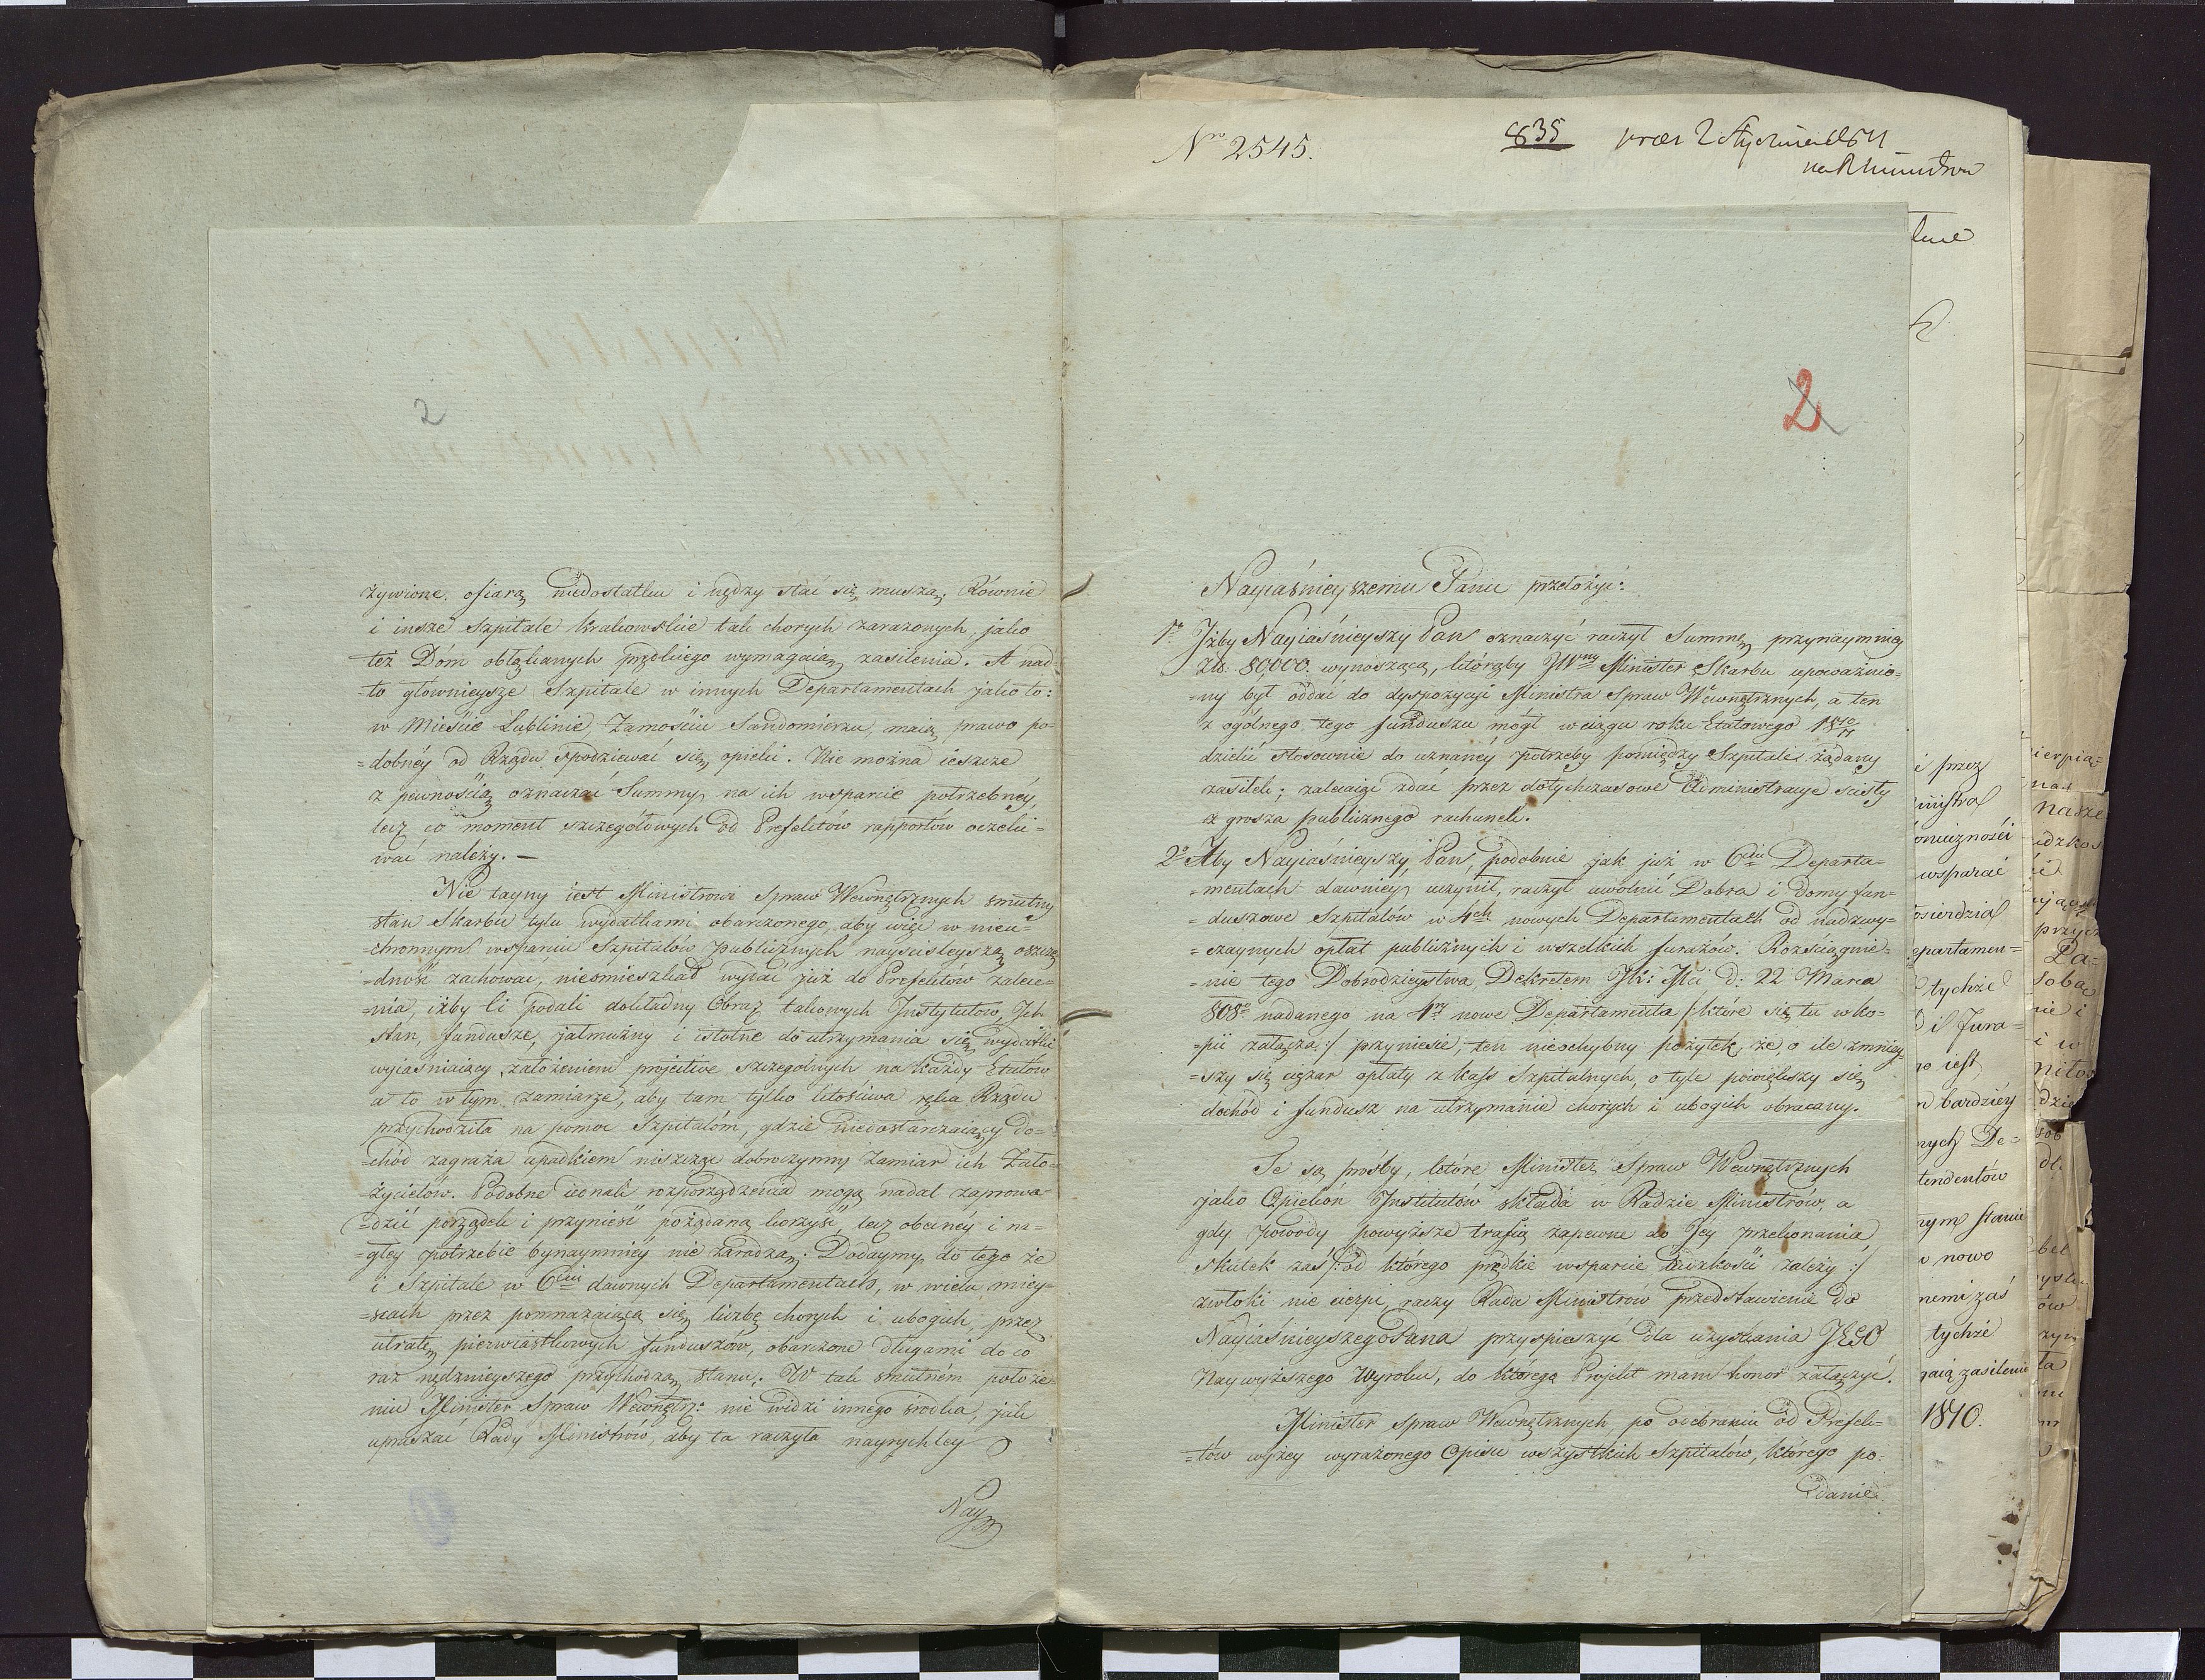 2
żywione, ofiarą niedostatku i nędzy stać się muszą. Równie
i insze Szpitale Krakowskie tak chorych zarażonych, jako
też Dóm obłąkanych prędkiego wymagaią zasilenia. A nad
=to głównieysze Szpitale w innych Departamentach jako to:
w Mieście Lublinie, Zamościu Sandomierzu, maią prawo po=
=dobnéy od Rządu spodziewać się opieki. Nie można ieszcze
z pewnością oznaczać Summy na ich wsparcie potrzebnéy,
lecz co moment szczegółowych od Prefektów rapportów oczeki=
wać należy. —
Nie tayny iest Ministrowi Spraw Wewnętrznych smutny
stan Skarbu tylu wydatkami obarczonego, aby więc w nieu=
=chronnym wsparciu Szpitalów publicznych nayściśleyszą oszczę
=dność zachować, nieomieszkał wydać już do Prefektów zalece=
=nia, iżby Ci podali dokładny Obraz takowych Instytutow, Ich
stan, fundusze, jałmużny i istotne do utrzymania się wydatki
wyiaśniaiący, załozeniem projektu szczegolnych na każdy Etatów
a to w tym zamiarze, aby tam tylko litościwa ręka Rządu
przychodziła na pomoc Szpitalóm, gdzie niedostarczaiący do=
=chód zagraża upadkiem niszcząc dobroczynny zamiar ich Zało=
=życielów. Podobne iednak rozporządzenia mogą nadal zaprowa=
=dzić porządek i przynieść pożądaną korzyść, lecz obecnéy i na=
=głey potrzebie bynaymniéy nie zaradzą. Dodaymy do tego że
i Szpitale w 6ciu dawnych Departamentach, w wielu miey=
=scach przez pomnażaiącą się liczbę chorych i ubogich, przez
utratę pierwiastkowych funduszów, obarczone długami do co
raz nędznieyszego przychodzą stanu. W tak smutném położe=
niu Minister Spraw Wewnętrz: nie widzi innego środka, jak
upraszać Rady Ministrów, aby ta raczyła nayrychley
Nay
Nro 2545.
835
2
Nayiaśnieyszemu Panu przełożyć:
1o Iżby Nayiaśnieyszy Pan oznaczyć raczył Summę przynaymniey
Złł. 80,000. wynoszącą, którąby JWny Minister Skarbu upoważnio=
=ny był oddać do dyspozycyi Ministra Spraw Wewnętrznych, a ten
z ogólnego tego funduszu mógł w ciągu roku Etatowego 1810/11
dzielić stosownie do uznanéy potrzeby pomiędzy Szpitale żądany
zasiłek; zaleciaigc zdać przez dotychczasowe Administracye ścisły
z grosza publicznego rachunek.
2o Aby Nayiaśnieyszy Pan, podobnie jak już w 6ciu Departa=
=mentach dawniey uczynił, raczył uwolnić Dobra i Domy fun=
=duszowe Szpitalów w 4ch nowych Departamentach od nadzwy=
=czaynych opłat publicznych i wszelkich furażów. Rozciągnie=
=nie tego Dobrodzieystwa, Dekretem JK: Mci d: 22 Marca
808o nadanego na 4ry nowe Departamenta /: które się tu w ko=
=pii załącza :/ przyniesie, ten nieochybny pożytek, że, o ile zmniey
=szy się ciężar opłaty z kass Szpitalnych, o tyle powiększy się
dochód i fundusz na utrzymanie chorych i ubogich obracany.
Te są prośby, które Minister Spraw Wewnętrznych
jako Opiekón Institutów składa w Radzie Ministrów, a
gdy powody powyższe trafią zapewne do Jéy przekonania,
skutek zaś /: od którego prędkie wsparcie ludzkości zależy :/
zwłoki nie cierpi, raczy Rada Ministrów przedstawienie do
Nayiaśnieyszego Pana przyspieszyć dla uzyskania JEGO
Naywyższego Wyroku, do którego Projekt mam honor załączyć.
Minister Spraw Wewnętrznych, po odebraniu od Prefek=
=tów wyżey wyrażonego Opisu wszystkich Szpitalów, którego po=
danie
przez
wsparać
epartamen=
tychże
i fura=
iest
bardziéy
nych De=
tendentów
nym stanie
nowo
nemi zaś
tychże
zasilenie
1810.